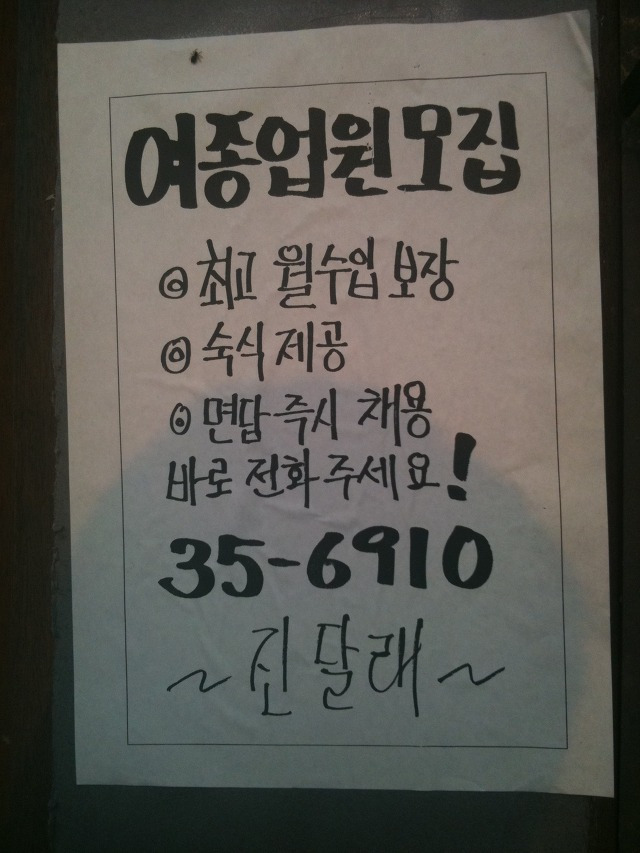 여종업원모집
◎ 최고 월수입 보장
◎ 숙식 제공
◎ 면담 즉시 채용
바로 전화 주세요!
35-6910
~진달래~